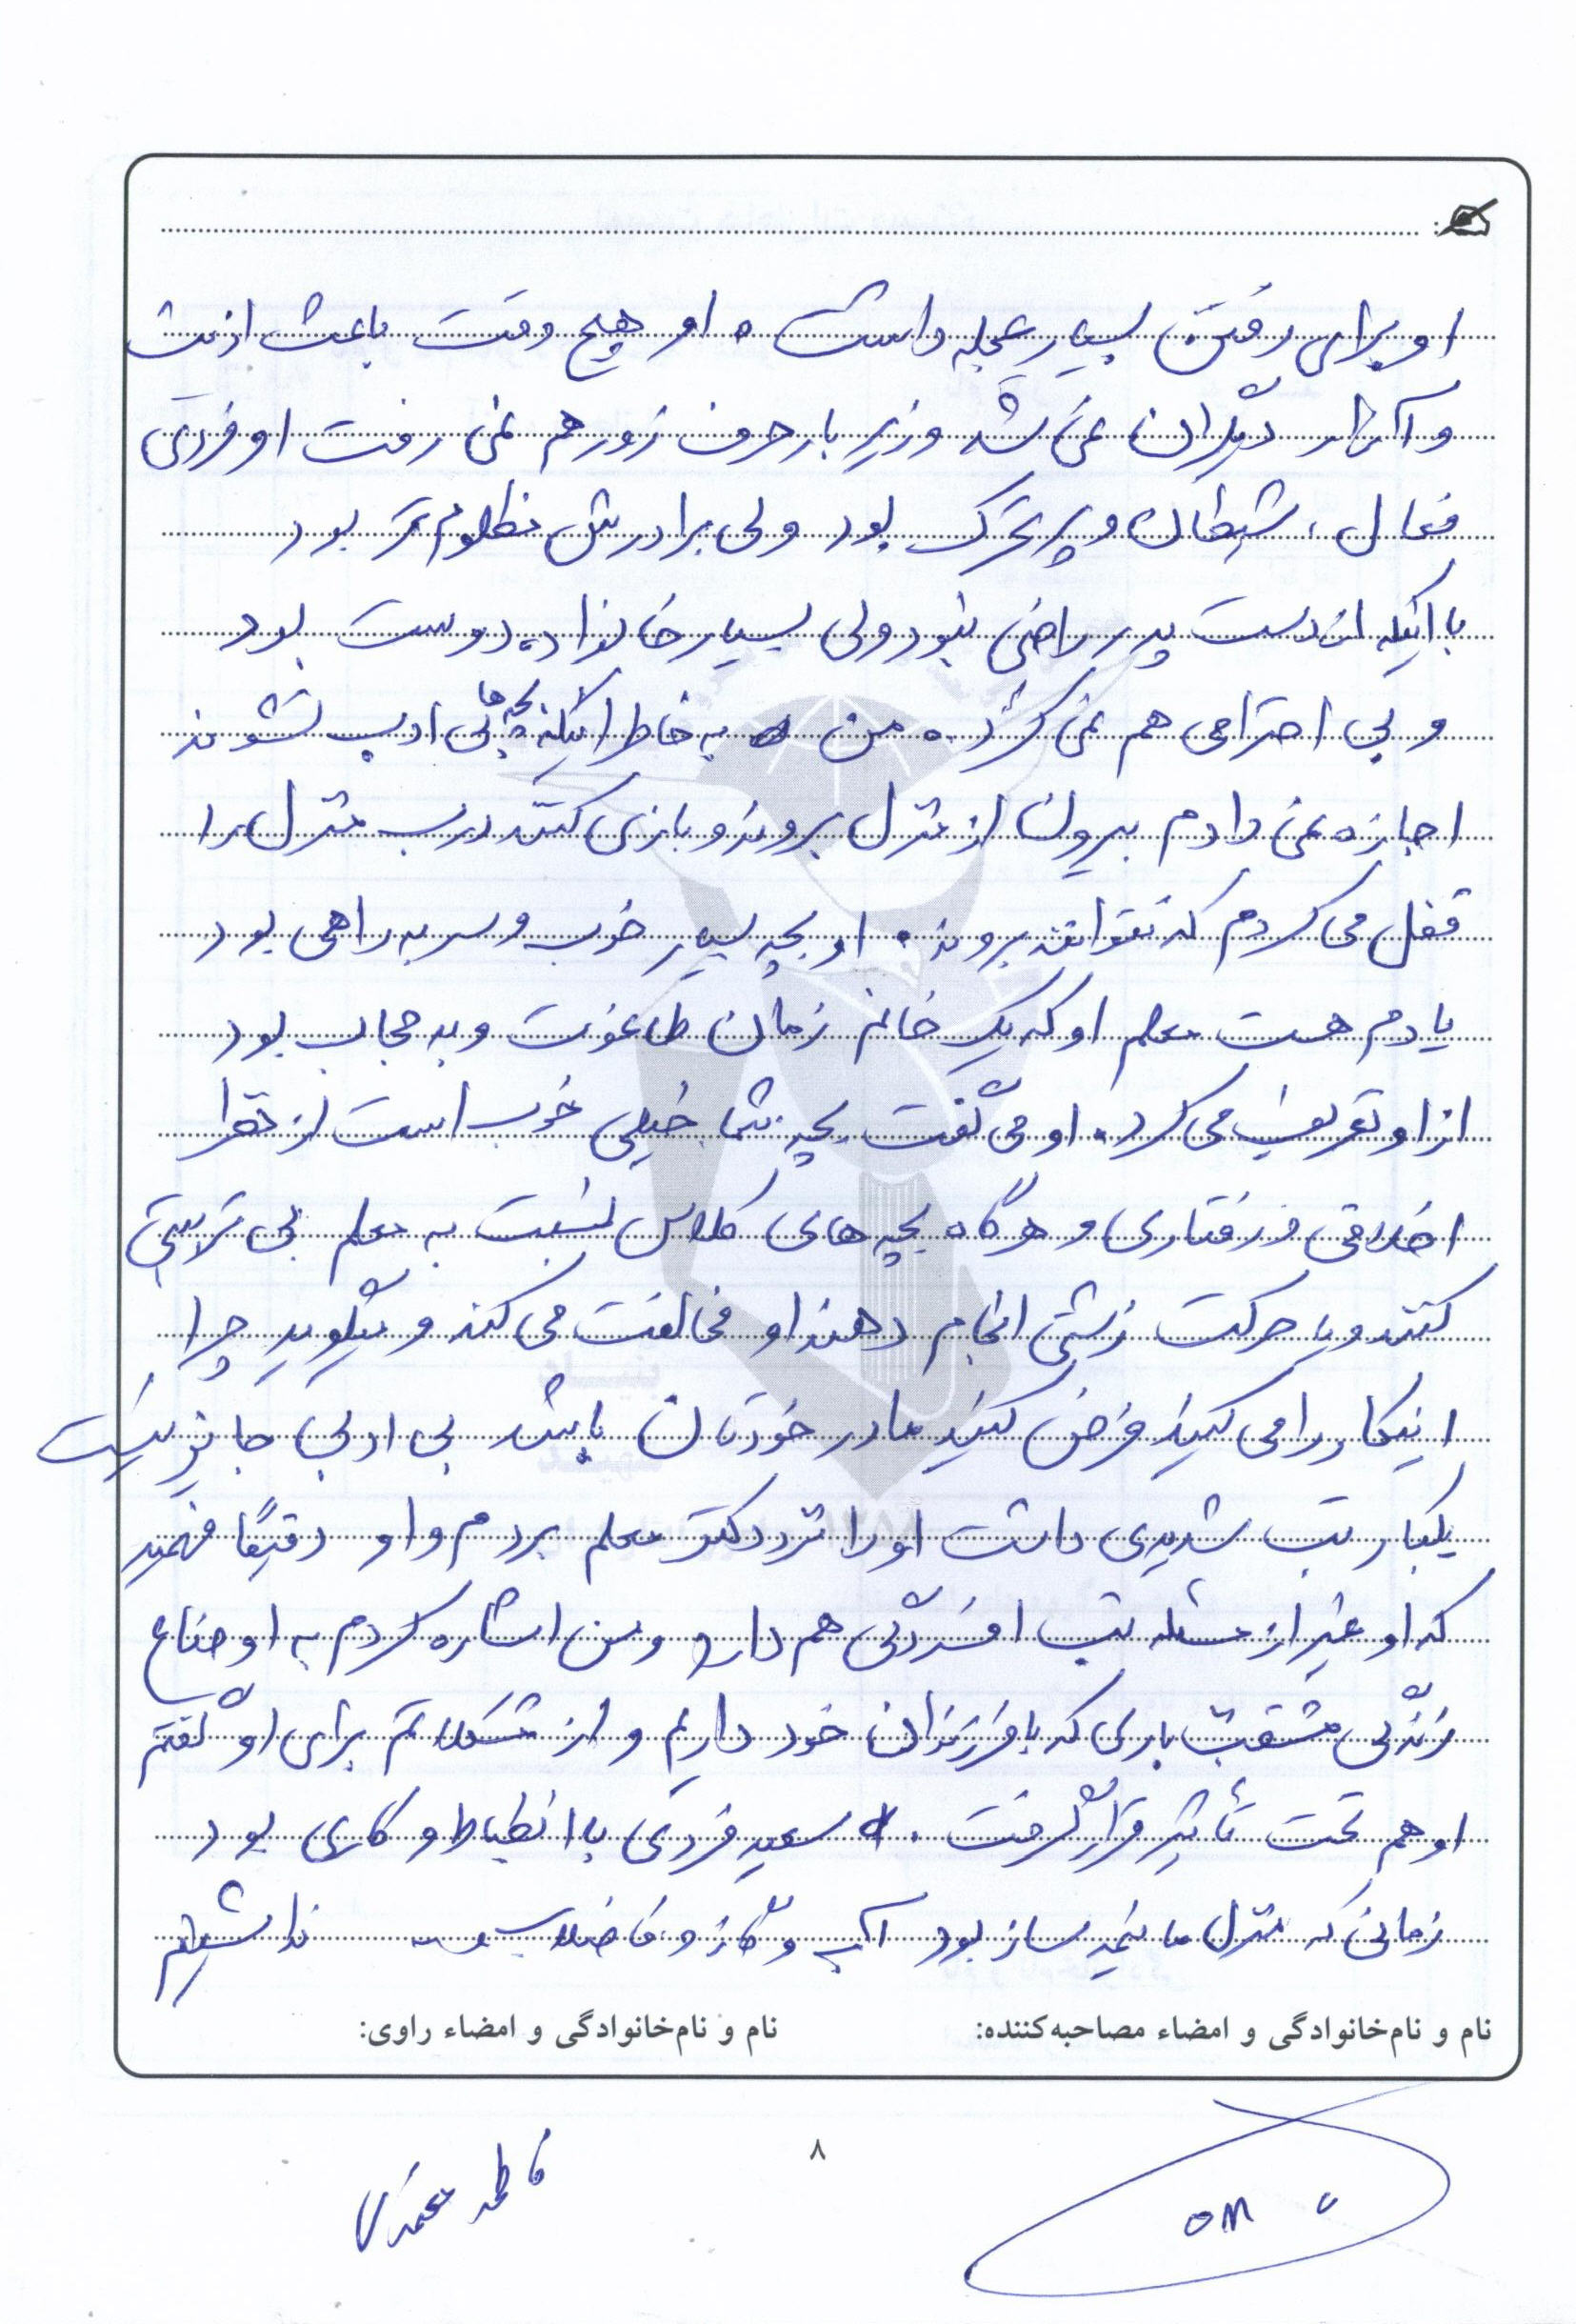 او برای رفتن بسیار عجله داشت . او هیچ وقت باعث اذیت
و آزار دیگران نمی شد و زیر بار حرف زور هم نمی رفت او فردی
فعال ، شیطان و پر تحرک بود ولی برادرش مظلوم تر بود
با اینکه از دست پدر راضی نبود ولی بسیار خانواده دوست بود
و بی احترامی هم نمی کرد . من به خاطر اینکه بچه ها بی ادب نشوند
اجازه نمی دادم بیرون از منزل بروند و بازی کنند درب منزل را
قفل می کردم که نتوانند بروند . او بچه بسیار خوب و سر به راهی بود
یادم هست معلم او که یک خانم زمان طاغوت و بد حجاب بود
از او تعریف می کرد . او می گفت بچه شما خیلی خوب است از نظر
اخلاقی و رفتاری و هرگاه بچه های کلاس نسبت به معلم بی تربیتی
کنند و یا حرکت زشتی انجام دهند او مخالفت می کند و میگوید چرا
اینکار را می کنید فرض کنید مادر خودتان باشد بی ادبی جایز نیست
یکبار تب شدیدی داشت او را نزد دکتر معلم بردم و او دقیقاً فهمید
که او غیر از مسئله تب افسردگی هم دارد و من اشاره کردم به اوضاع
زندگی مشقت باری که با فرزندان خود داریم و از مشکلاتم برای او گفتم
او هم تحت تأثیر قرار گرفت . سعید فردی با انظباط و کاری بود
زمانی که منزل ما نیمه ساز بود آب و گاز و فاضلاب نداشتیم
نام و نام‌خانوادگی و امضاء مصاحبه‌کننده:
نام و نام‌خانوادگی و امضاء راوی:
۸
فاطمه محمدی